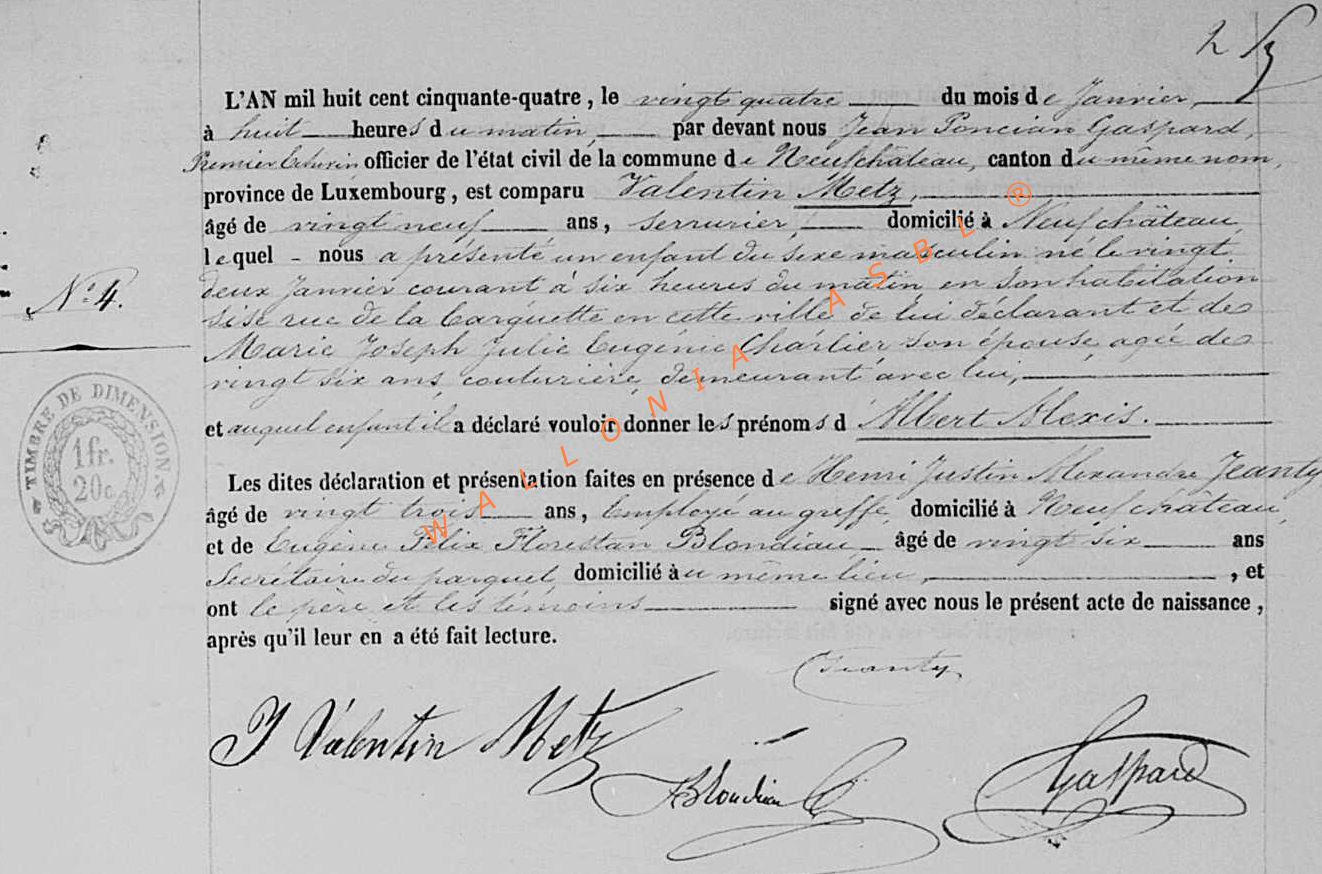 2
L'AN mil huit cent cinquante-quatre, le vingt quatre du mois de Janvier,
à huit heures du matin, par devant nous Jean Poncian Gaspard,
Premier Echevin officier de l'état civil de la commune de Neufchâteau, canton du même nom,
province de Luxembourg, est comparu Valentin Metz,
âgé de vingt neuf ans, serrurier, domicilié à Neufchâteau,
lequel - nous a présenté un enfant du sexe masculin né le vingt
N.° 4.
deux Janvier courant à six heures du matin en son habitation
sise rue de la Carquette en cette ville de lui déclarant et de
Marie Joseph Julie Eugénie Charlier son épouse, agée de
vingt six ans, couturière, demeurant avec lui,
et auquel enfant il a déclaré vouloir donner les prénoms d Albert Alexis.
TIMBRE DE DIMENSION
1 fr.
20c
Les dites déclaration et présentation faites en présence de Henri Justin Alexandre Jeanty
âgé de vingt trois ans, Employé au greffe, domicilié à Neufchâteau,
et de Eugène Félix Florestan Blondiau âgé de vingt six ans
Secrétaire du parquet, domicilié au même lieu, , et
ont le père et les témoins signé avec nous le présent acte de naissance,
après qu'il leur en a été fait lecture.
Jeanty
J Valentin Metz
Blondiau
Gaspard
WALLONIA ASBL ®